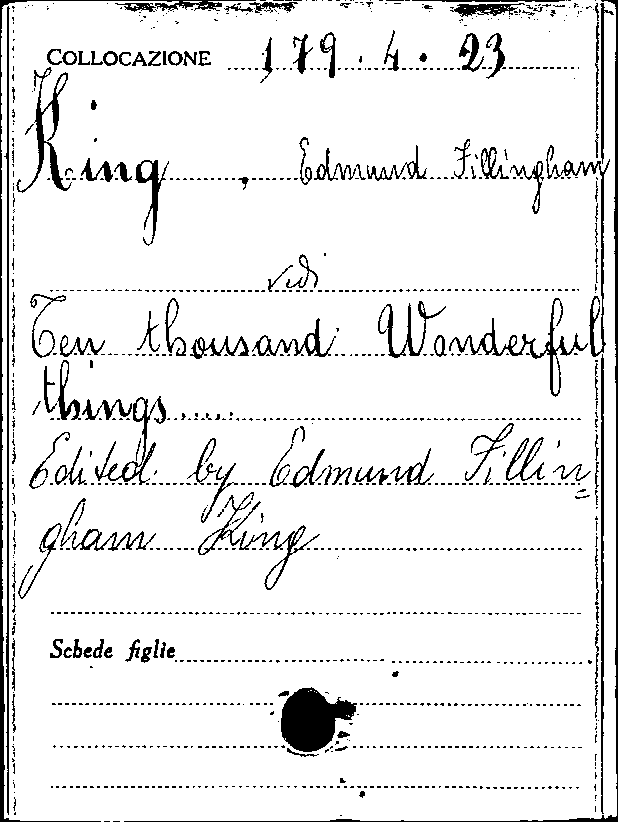 COLLOCAZIONE 179.4.23
King, Edmund Fillingham
vedi
Ten thousand Wonderful
things.....
Edited by Edmund Fillin=
gham King
Schede figlie